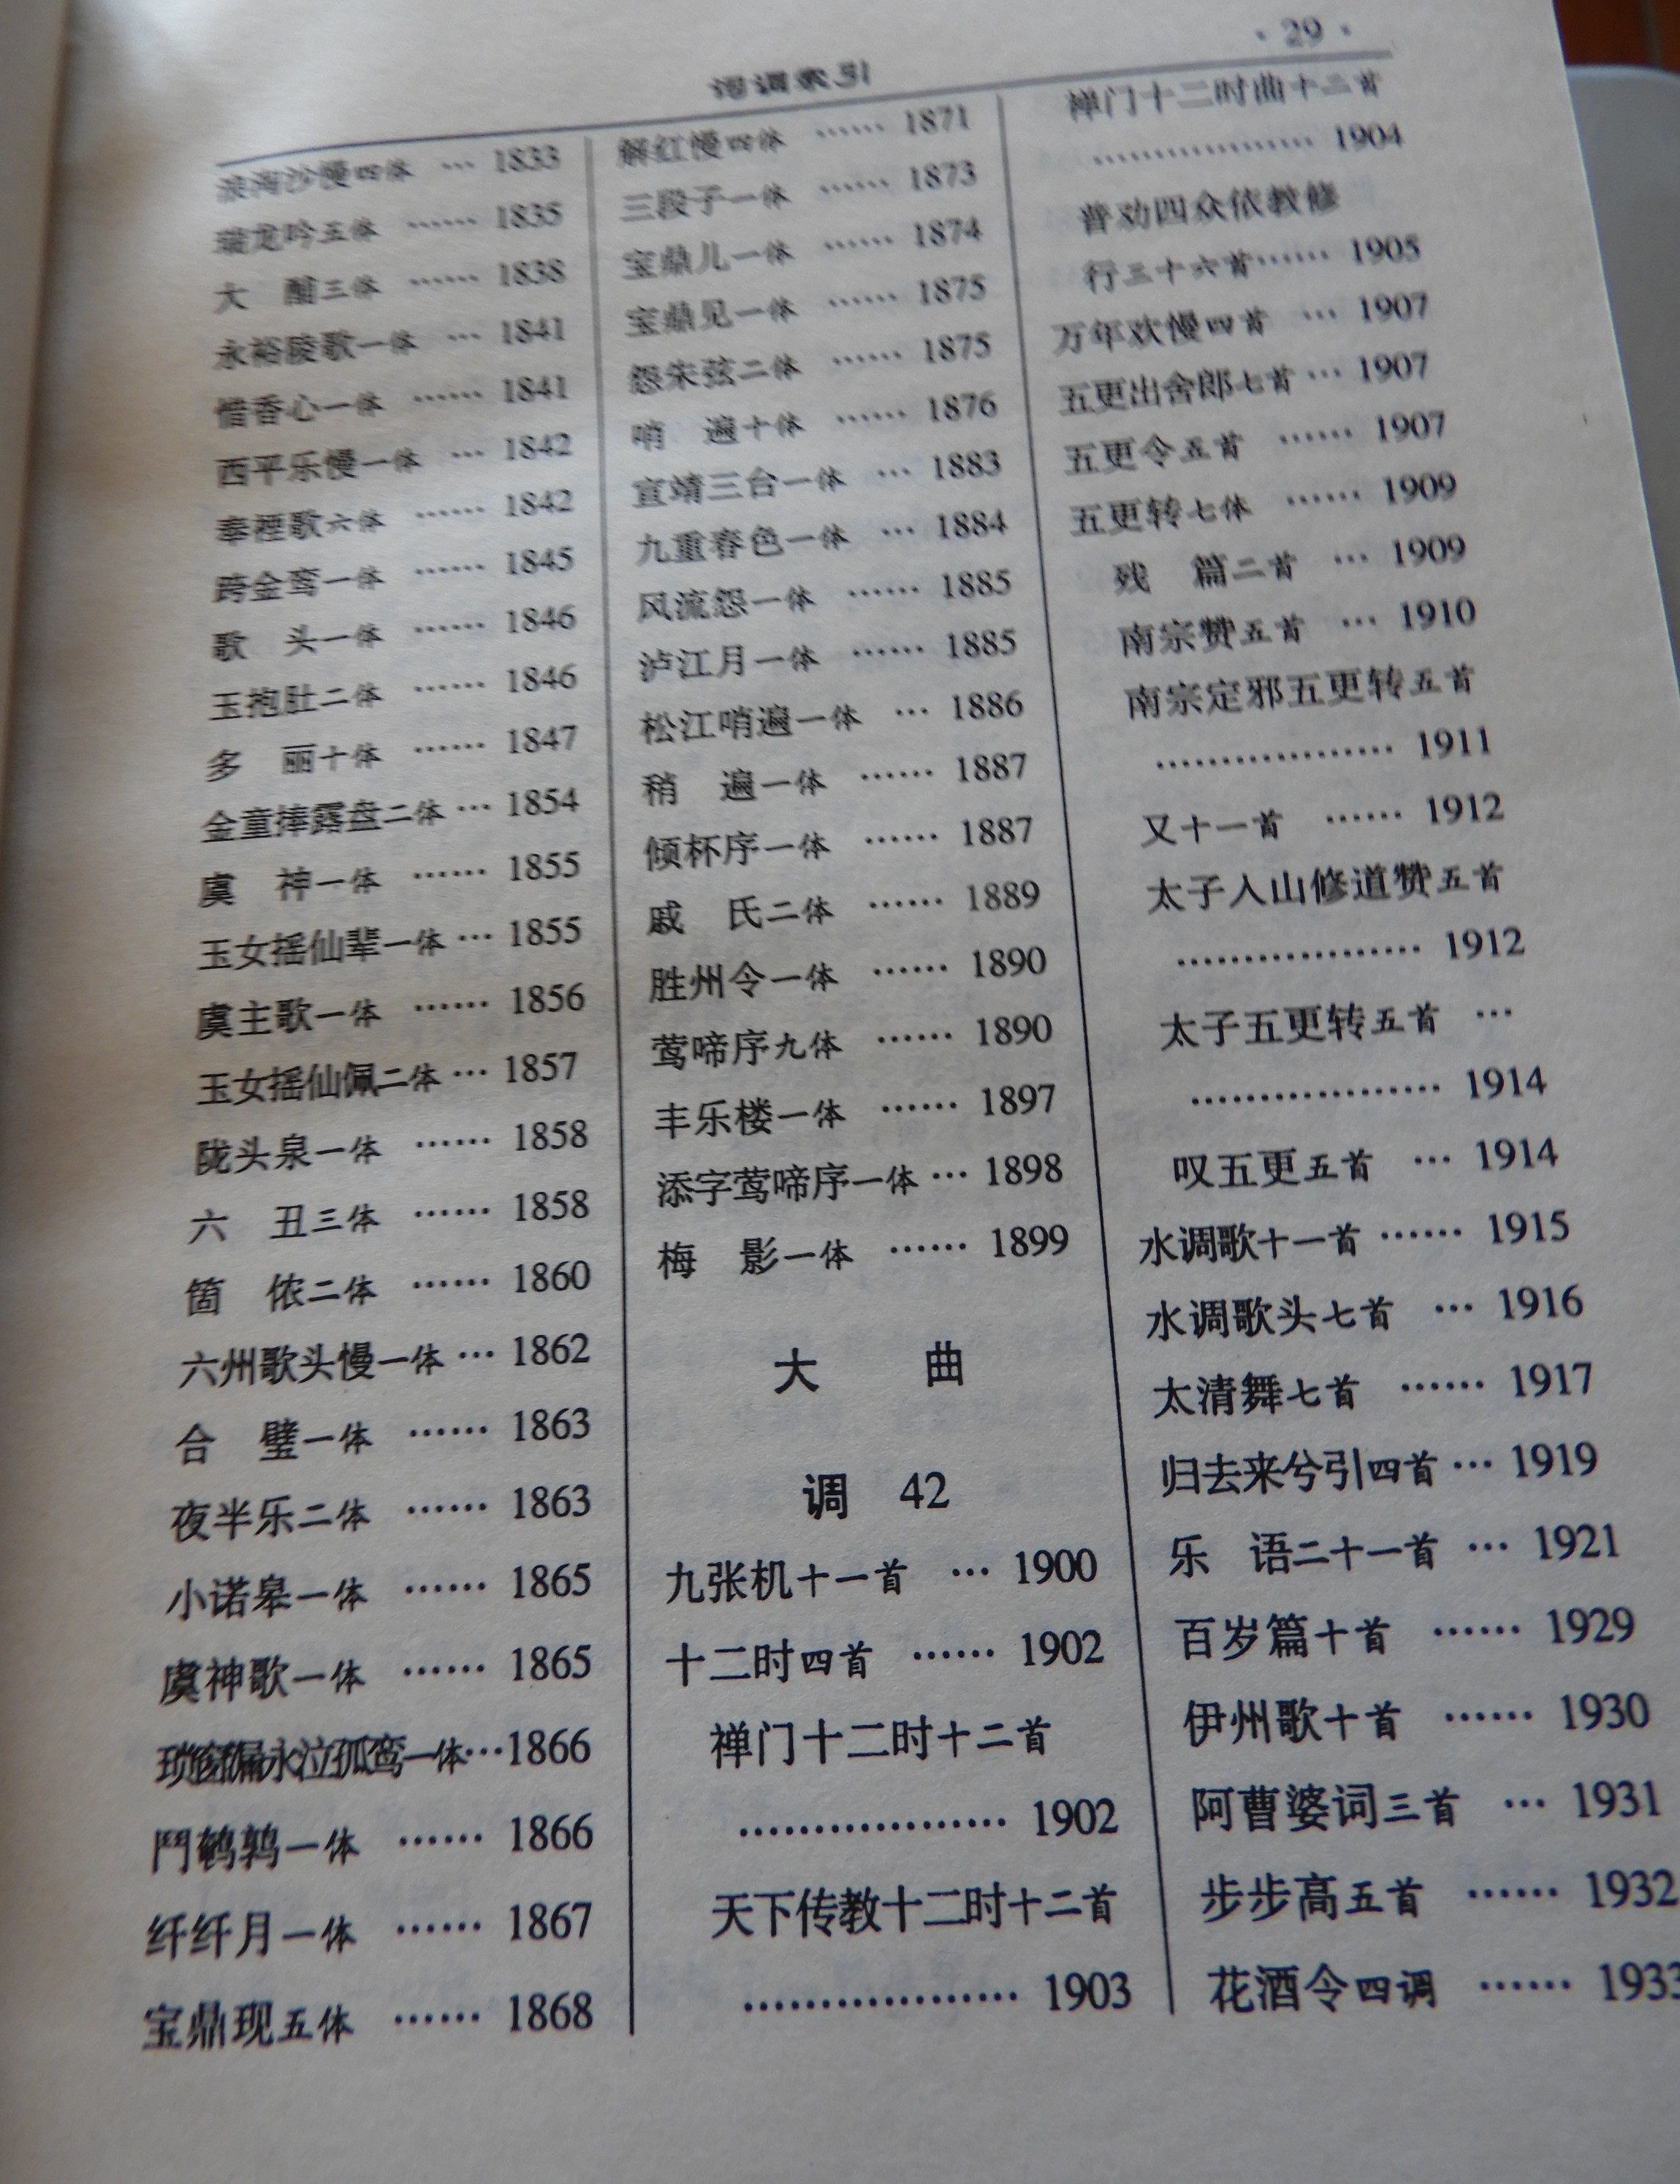 · 29 ·
词调索引
浪淘沙慢四体 … 1833
瑞龙吟五体 …… 1835
大　酺三体 …… 1838
永裕陵歌一体 … 1841
惜香心一体 …… 1841
西平乐慢一体 … 1842
奉禋歌六体 …… 1842
跨金鸾一体 …… 1845
歌　头一体 …… 1846
玉抱肚二体 …… 1846
多　丽十体 …… 1847
金童捧露盘二体 … 1854
虞　神一体 …… 1855
玉女摇仙辈一体 … 1855
虞主歌一体 …… 1856
玉女摇仙佩二体 … 1857
陇头泉一体 …… 1858
六　丑三体 …… 1858
箇　侬二体 …… 1860
六州歌头慢一体 … 1862
合　璧一体 …… 1863
夜半乐二体 …… 1863
小诺皋一体 …… 1865
虞神歌一体 …… 1865
琐窗漏永泣孤鸾一体…1866
鬥鹌鹑一体 …… 1866
纤纤月一体 …… 1867
宝鼎现五体 …… 1868
解红慢四体 …… 1871
三段子一体 …… 1873
宝鼎儿一体 …… 1874
宝鼎见一体 …… 1875
怨朱弦二体 …… 1875
哨　遍十体 …… 1876
宣靖三台一体 … 1883
九重春色一体 … 1884
风流怨一体 …… 1885
泸江月一体 …… 1885
松江哨遍一体 … 1886
稍　遍一体 …… 1887
倾杯序一体 …… 1887
戚　氏二体 …… 1889
胜州令一体 …… 1890
莺啼序九体 …… 1890
丰乐楼一体 …… 1897
添字莺啼序一体 … 1898
梅　影一体 …… 1899
大　　曲
调　42
九张机十一首 … 1900
十二时四首 …… 1902
禅门十二时十二首
……………… 1902
天下传教十二时十二首
……………… 1903
禅门十二时曲十二首
……………… 1904
普劝四众依教修
行三十六首…… 1905
万年欢慢四首 … 1907
五更出舍郎七首 … 1907
五更令五首 …… 1907
五更转七体 …… 1909
残　篇二首 … 1909
南宗赞五首 … 1910
南宗定邪五更转五首
……………… 1911
又十一首 …… 1912
太子入山修道赞五首
……………… 1912
太子五更转五首 …
……………… 1914
叹五更五首 … 1914
水调歌十一首 …… 1915
水调歌头七首 … 1916
太清舞七首 …… 1917
归去来兮引四首 … 1919
乐　语二十一首 … 1921
百岁篇十首 …… 1929
伊州歌十首 …… 1930
阿曹婆词三首 … 1931
步步高五首 …… 1932
花酒令四调 …… 1933